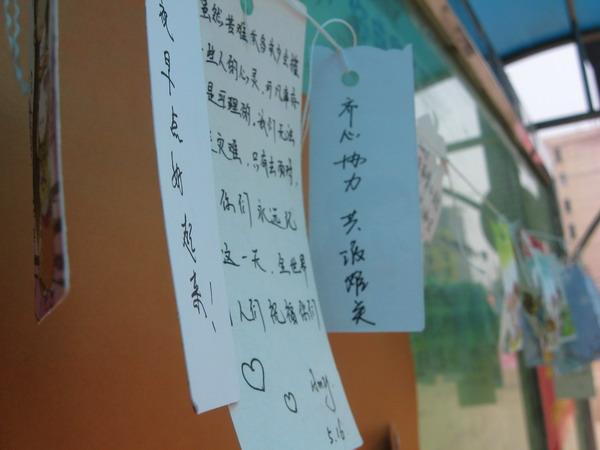 早点好起来！
虽然苦难
些人的心灵，可
是可理的，我们无法
灾难，只有去面对，
你们永远记
这一天，全世界
人们祝福你们
Amy
5.16
齐心协力 共渡难关